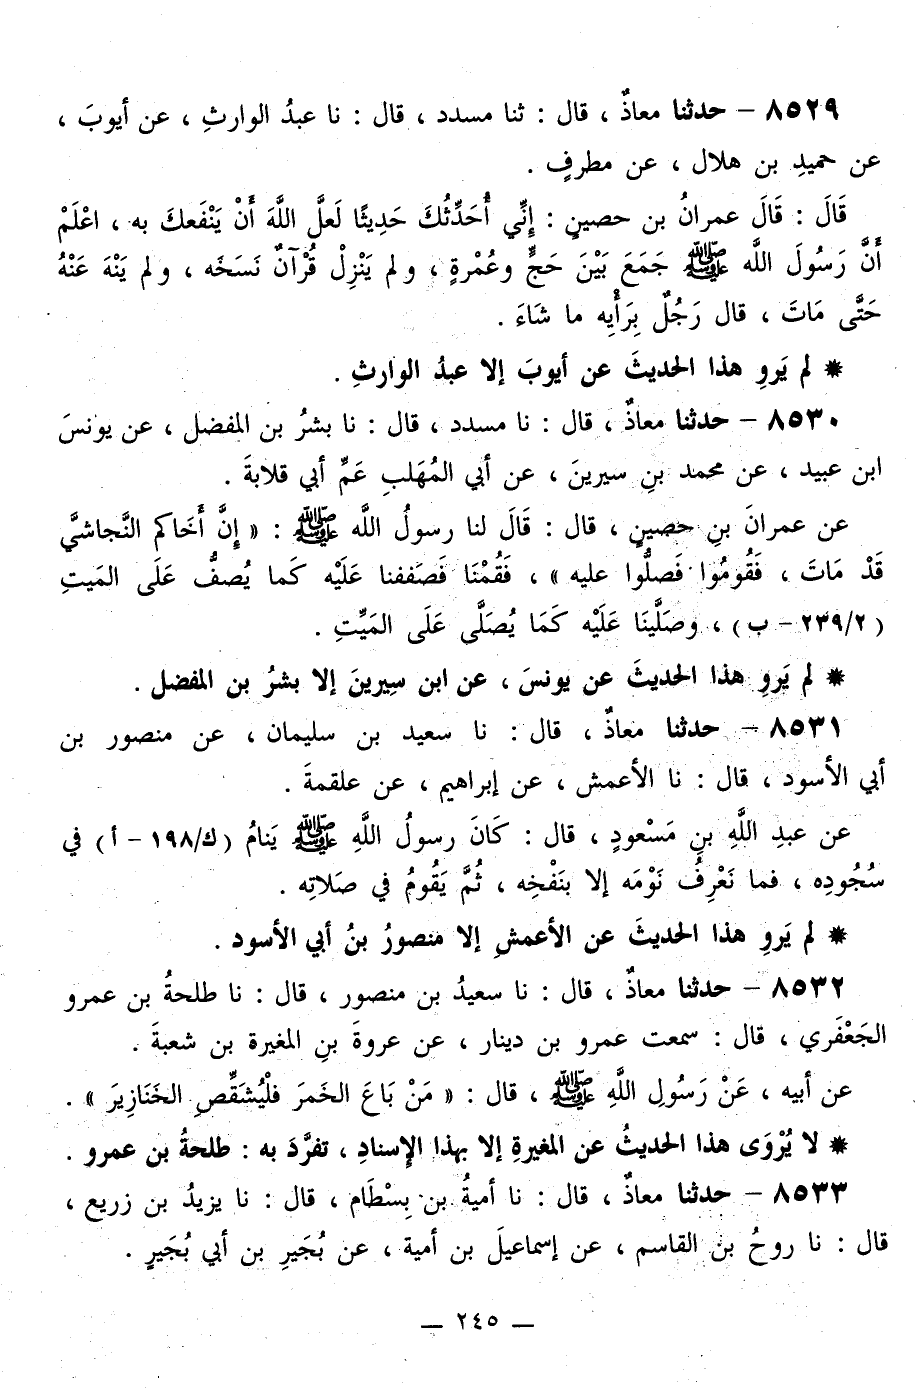 ٨٥٢٩ – حدثنا معاذٌ ، قال : ثنا مسدد ، قال : نا عبدُ الوارثِ ، عن أيوبَ ،
عن حميدِ بن هلال ، عن مطرفٍ .
قَالَ : قَالَ عمرانُ بن حصينٍ : إِنِّي أُحَدِّثُكَ حَدِيثًا لَعلَّ اللَّهَ أَنْ يَنْفَعكَ به ، اعْلَمْ
أَنَّ رَسُولَ اللَّه ﷺ جَمَعَ بَيْنَ حَجٍّ وعُمْرةٍ ، ولم يَنْزِلْ قُرْآنٌ نَسَخَه ، ولم يَنْهَ عَنْهُ
حَتَّى مَاتَ ، قال رَجُلٌ بِرَأْيِه ما شَاءَ .
* لم يَروِ هذا الحديثَ عن أيوبَ إلا عبدُ الوارثِ .
٨٥٣٠ – حدثنا معاذٌ ، قال : نا مسدد ، قال : نا بشرُ بن المفضل ، عن يونسَ
ابن عبيد ، عن محمد بنِ سيرينَ ، عن أبي المُهَلبِ عَمِّ أبي قلابةَ .
عن عمرانَ بنِ حصينٍ ، قال : قَالَ لنا رسولُ اللَّه ﷺ : « إِنَّ أَخَاكم النَّجاشيَّ
قَدْ مَاتَ ، فَقُومُوا فَصلُّوا عليه » ، فَقُمْنَا فَصَففنا عَلَيْه كَما يُصفُّ عَلَى المَيتِ
(٢٣٩/٢ – ب) ، وصَلَّينَا عَلَيْه كَمَا يُصَلَّى عَلَى المَيِّتِ .
* لم يَروِ هذا الحديثَ عن يونسَ ، عن ابن سِيرينَ إلا بشرُ بن المفضل .
٨٥٣١ – حدثنا معاذٌ ، قال : نا سعيد بن سليمان ، عن منصور بن
أبي الأسود ، قال : نا الأعمش ، عن إبراهيم ، عن علقمةَ .
عن عبدِ اللَّهِ بنِ مَسْعودٍ ، قال : كَانَ رسولُ اللَّهِ ﷺ يَنامُ (ك/١٩٨ – أ) في
سُجُودِه ، فما نَعْرِفُ نَوْمَه إلا بنَفْخِه ، ثُمَّ يَقُومُ في صَلاتِه .
* لم يَروِ هذا الحديثَ عن الأعمشِ إلا منصورُ بنُ أبي الأسود .
٨٥٣٢ – حدثنا معاذٌ ، قال : نا سعيدُ بن منصور ، قال : نا طلحةُ بن عمرو
الجَعْفَري ، قال : سمعت عمرو بن دينار ، عن عروةَ بنِ المغيرة بن شعبةَ .
عن أبيه ، عَنْ رَسُولِ اللَّهِ ﷺ ، قال : « مَنْ بَاعَ الخمرَ فلْيُشَقِّصِ الخَنَازِيرَ » .
* لا يُرْوَى هذا الحديثُ عن المغيرةِ إلا بهذا الإسنادِ ، تفرَّدَ به : طلحةُ بن عمرو .
٨٥٣٣ – حدثنا معاذٌ ، قال : نا أميةُ بن بِسْطَام ، قال : نا يزيدُ بن زريع ،
قال : نا روحُ بن القاسم ، عن إسماعيلَ بن أمية ، عن بُجَيرِ بن أبي بُجَيرٍ .
– ٢٤٥ –